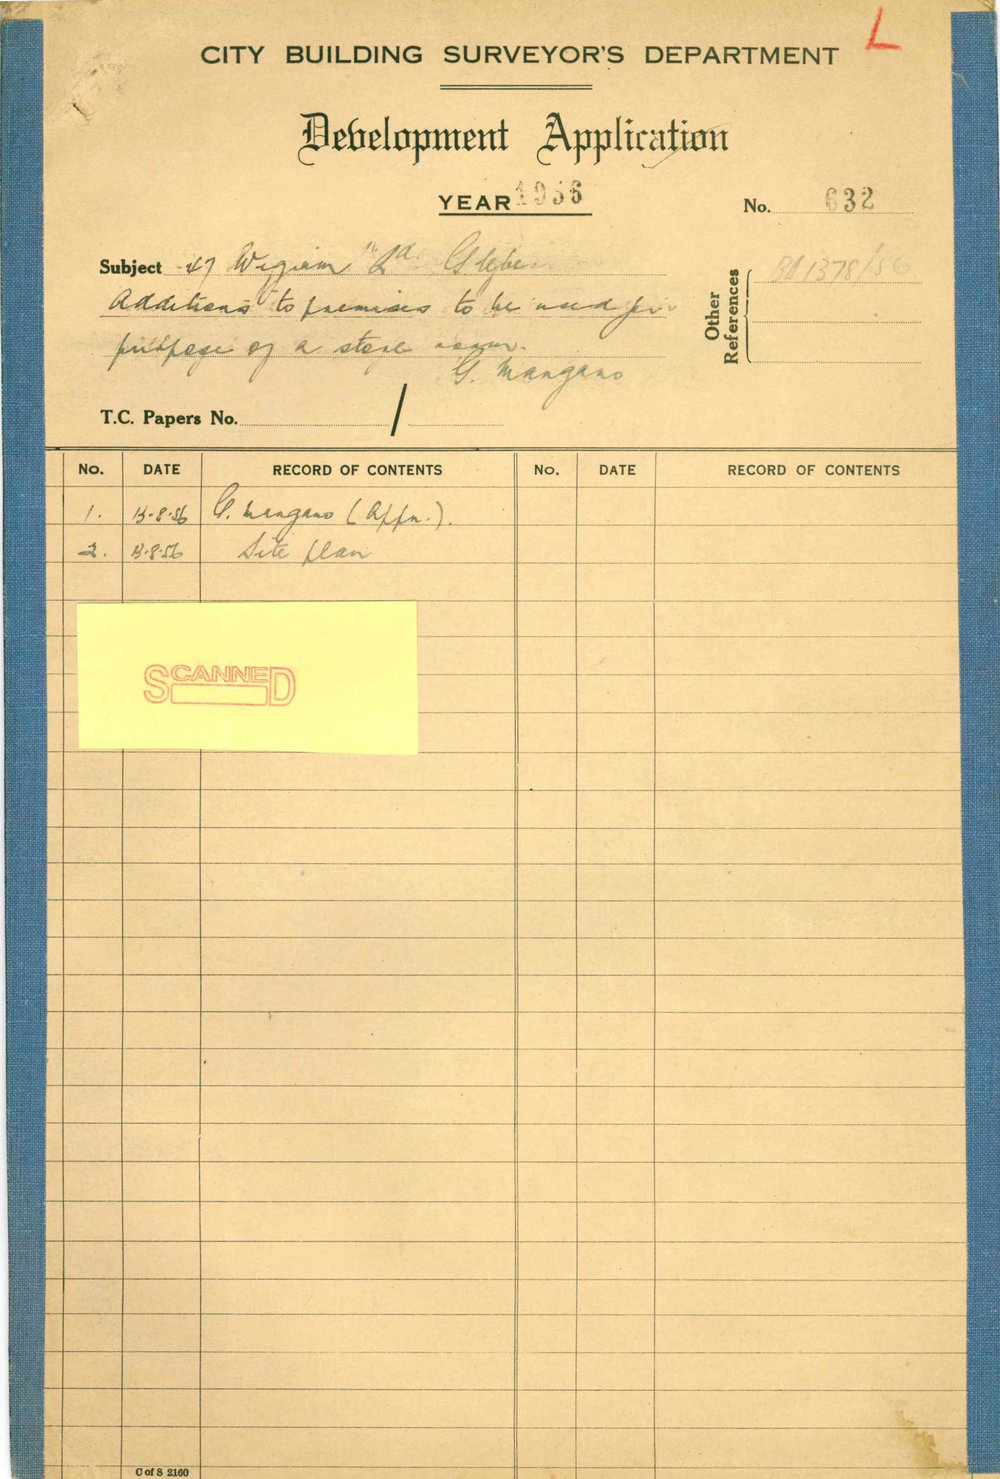 L
CITY BUILDING SURVEYOR'S DEPARTMENT
Development Application
YEAR 1956
No. 632
Subject 47 Wigram Rd Glebe
Additions to premises to be used for
purpose of a store room.
G. Mangano
Other References
BA 1378/56
T.C. Papers No. /
No. DATE RECORD OF CONTENTS No. DATE RECORD OF CONTENTS
1. 13-8-56 G. Mangano (Appn.).
2. 13-8-56 Site plan
SCANNED
C of S 2160